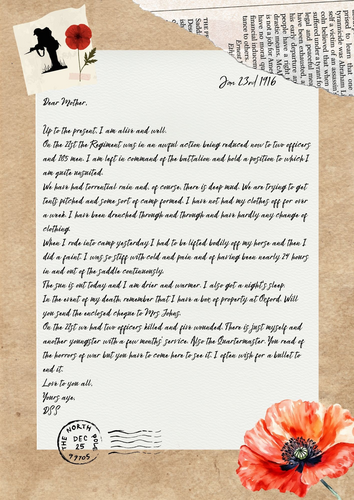 Jan 23rd 1916
Dear Mother,
Up to the present, I am alive and well.
On the 21st the Regiment was in an awful action being reduced now to two officers
and 185 men. I am left in command of the battalion and hold a position to which I
am quite unsuited.
We have had torrential rain and, of course, there is deep mud. We are trying to get
tents pitched and some sort of camp formed. I have not had my clothes off for over
a week. I have been drenched through and through and have hardly any change of
clothing.
When I rode into camp yesterday I had to be lifted bodily off my horse and then I
did a faint. I was so stiff with cold and pain and of having been nearly 24 hours
in and out of the saddle continuously.
The sun is out today and I am drier and warmer. I also got a night's sleep.
In the event of my death remember that I have a box of property at Oxford. Will
you send the enclosed cheque to Mrs Johns.
On the 21st we had two officers killed and five wounded. There is just myself and
another youngster with a few months' service. Also the Quartermaster. You read of
the horrors of war but you have to come here to see it. I often wish for a bullet to
end it.
Love to you all.
Yours aye,
DSS
THE NORTH POLE
DEC
25